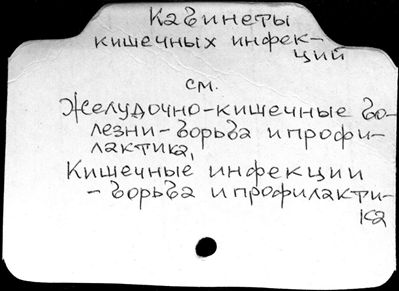 Кабинеты
кишечных инфек-
ций
см.
Желудочно-кишечные бо-
лезни-борьба и профи-
лактика,
Кишечные инфекции
- борьба и профилакти-
ка